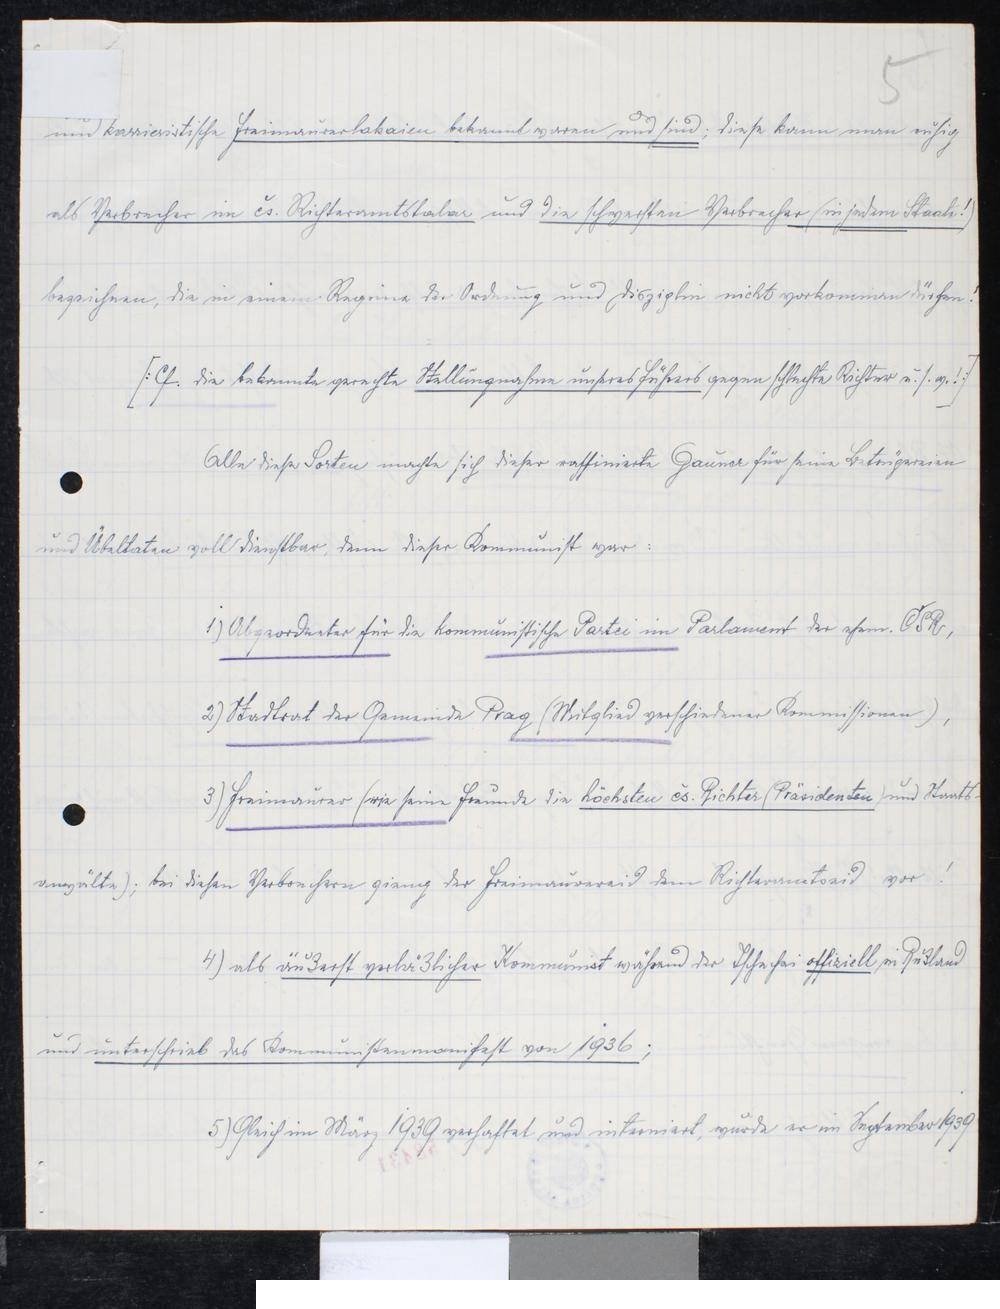 5
und karrieristische Freimaurerlakaien bekannt waren und sind; diese kann man ruhig
als Verbrecher im čs. Richteramtstalar und die schwersten Verbrecher (in jedem Staate!)
bezeichnen, die in einem Regime der Ordnung und Disziplin nicht vorkommen dürfen!
[: Cf. die bekannte gerechte Stellungnahme unseres Führers gegen schlechte Richter u. s. w.! :]
Alle diese Sorten machte sich dieser raffinierte Gauner für seine Betrügereien
und Übeltaten voll dienstbar, denn dieser Kommunist war:
1) Abgeordneter für die kommunistische Partei im Parlament der ehem. ČSR,
2) Stadtrat der Gemeinde Prag (Mitglied verschiedener Kommissionen),
3) Freimaurer (wie seine Freunde die höchsten čs. Richter (Präsidenten) und Staats-
anwälte); bei diesen Verbrechern gieng der Freimaurereid dem Richteramtseid vor!
4) als äußerst verläßlicher Kommunist während der Tschechei offiziell in Rußland
und unterschrieb das Kommunistenmanifest von 1936;
5) Gleich im März 1939 verhaftet und interniert, wurde er im September 1939